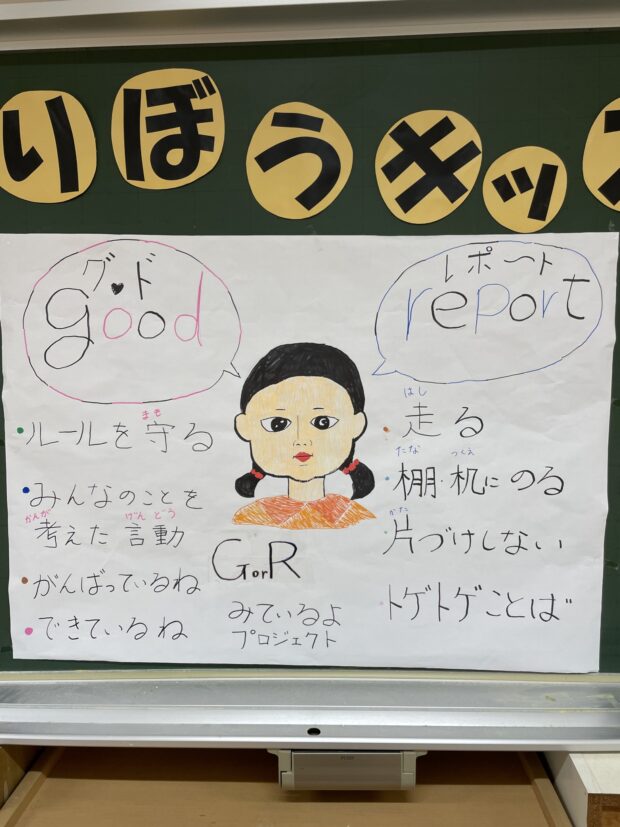 りぼうキッズ
グッド
good
・ルールを守る
まも
・みんなのことを
考えた言動
かんが げんどう
・がんばっているね
・できているね
GorR
みているよ
プロジェクト
レポート
report
・走る
はし
・棚・机にのる
たな つくえ
・片づけしない
かた
・トゲトゲことば